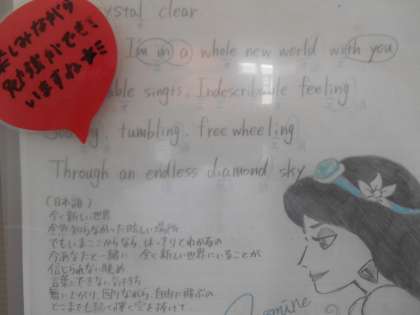 ystal clear
I'm in a whole new world with you
ble singts, Indescribable feeling
tumbling, free wheeling
Through an endless diamond sky
楽しみながら
勉強ができて
いますね
(日本語)
全く新しい世界
知らなかった眩しい場所
でもいまここからなら、はっきりとわかるの
今あなたと一緒に 全く新しい世界にいることが
信じられない眺め
言葉にできない気持ち
舞い上がり、回りながら、自由に飛ぶの
どこまでも続く輝く空を抜けて
Jasmine